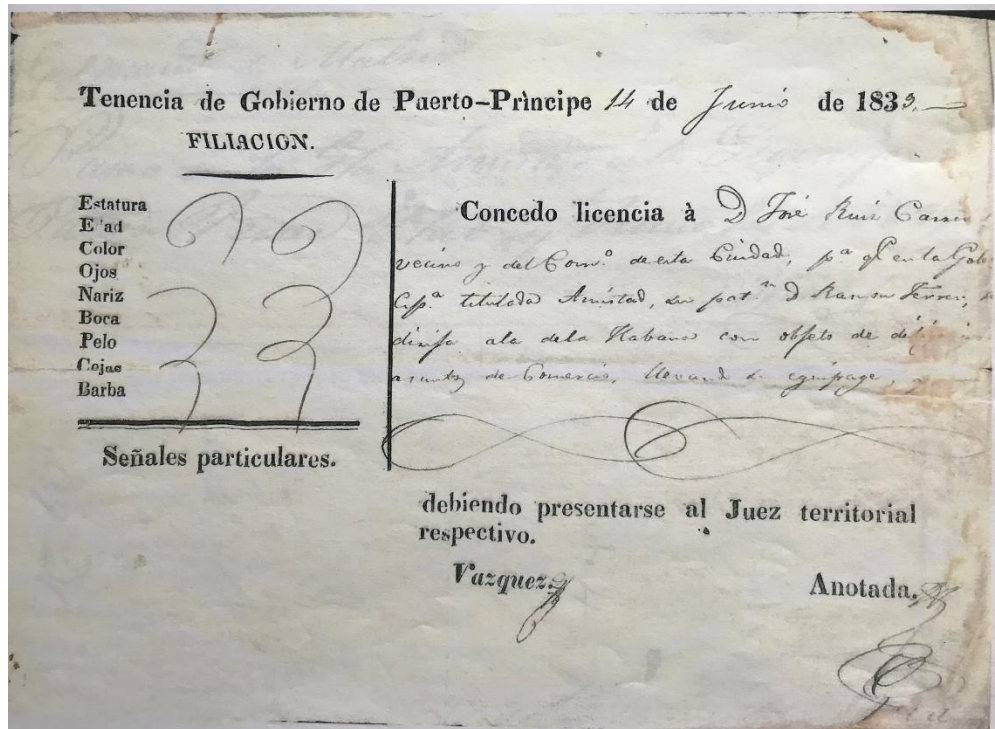 Tenencia de Gobierno de Puerto-Prìncipe 14 de Junio de 1833.
FILIACION.
Estatura
E'ad
Color
Ojos
Nariz
Boca
Pelo
Cejas
Barba
Señales particulares.
Concedo licencia à D José Ruiz
vecino y del Com.º de esta Ciudad, p.ª q.e en la Gol
Esp.ª titulada Amistad, su pat.n D Ramon Ferrer,
dirija a la de la Habana con objeto de
asuntos de Comercio, llevando su equipage.
debiendo presentarse al Juez territorial
respectivo.
Vazquez.
Anotada.